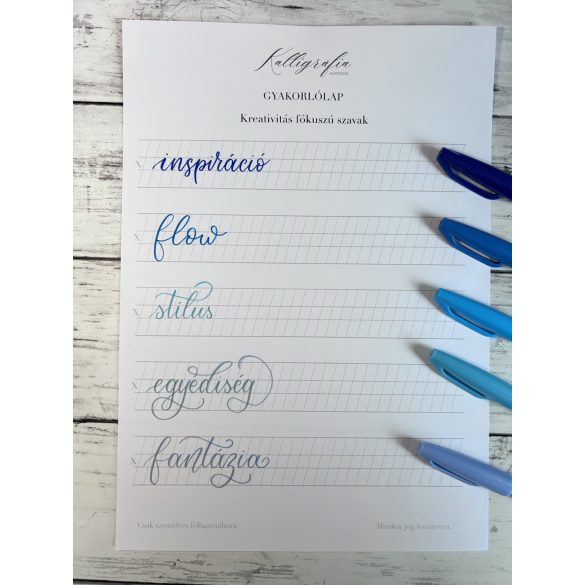 Kalligrafia
GYAKORLÓLAP
Kreativitás fókuszú szavak
x inspiráció
x flow
x stílus
x egyediség
x fantázia
Csak személyes felhasználásra. Minden jog fenntartva.